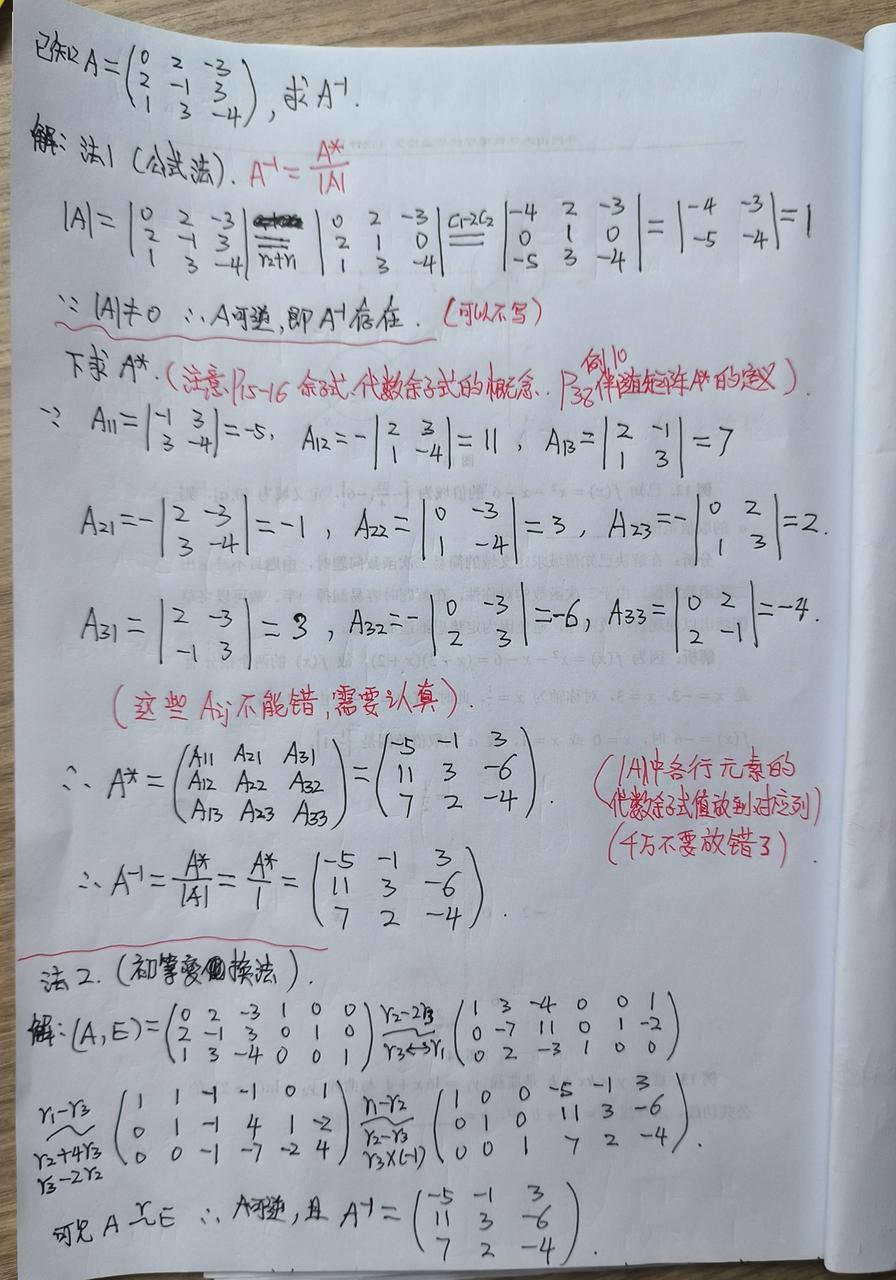 已知 A = (0 2 -3; 2 -1 3; 1 3 -4), 求 A⁻¹.
解: 法1 (公式法). A⁻¹ = A*/|A|
|A| = |0 2 -3; 2 -1 3; 1 3 -4| ══(r2+r1) |0 2 -3; 2 1 0; 1 3 -4| ══(c1-2c2) |-4 2 -3; 0 1 0; -5 3 -4| = |-4 -3; -5 -4| = 1
∵ |A|≠0 ∴ A可逆, 即 A⁻¹存在. (可以不写)
下求 A*. (注意P15-16 余子式、代数余子式的概念. P38 例10 伴随矩阵A*的定义).
∵ A11 = |-1 3; 3 -4| = -5, A12 = -|2 3; 1 -4| = 11, A13 = |2 -1; 1 3| = 7
A21 = -|2 -3; 3 -4| = -1, A22 = |0 -3; 1 -4| = 3, A23 = -|0 2; 1 3| = 2.
A31 = |2 -3; -1 3| = 3, A32 = -|0 -3; 2 3| = -6, A33 = |0 2; 2 -1| = -4.
(这些 Aij 不能错, 需要认真).
∴ A* = (A11 A21 A31; A12 A22 A32; A13 A23 A33) = (-5 -1 3; 11 3 -6; 7 2 -4).
(|A|中各行元素的
代数余子式值放到对应列)
(千万不要放错了).
∴ A⁻¹ = A*/|A| = A*/1 = (-5 -1 3; 11 3 -6; 7 2 -4).
法2. (初等变换法).
解: (A, E) = (0 2 -3 1 0 0; 2 -1 3 0 1 0; 1 3 -4 0 0 1) ~(r2-2r3, r3↔r1) (1 3 -4 0 0 1; 0 -7 11 0 1 -2; 0 2 -3 1 0 0)
~(r1-r3, r2+4r3, r3-2r2) (1 1 -1 -1 0 1; 0 1 -1 4 1 -2; 0 0 -1 -7 -2 4) ~(r1-r2, r2-r3, r3×(-1)) (1 0 0 -5 -1 3; 0 1 0 11 3 -6; 0 0 1 7 2 -4).
可见 A ~(r) E ∴ A可逆, 且 A⁻¹ = (-5 -1 3; 11 3 -6; 7 2 -4).